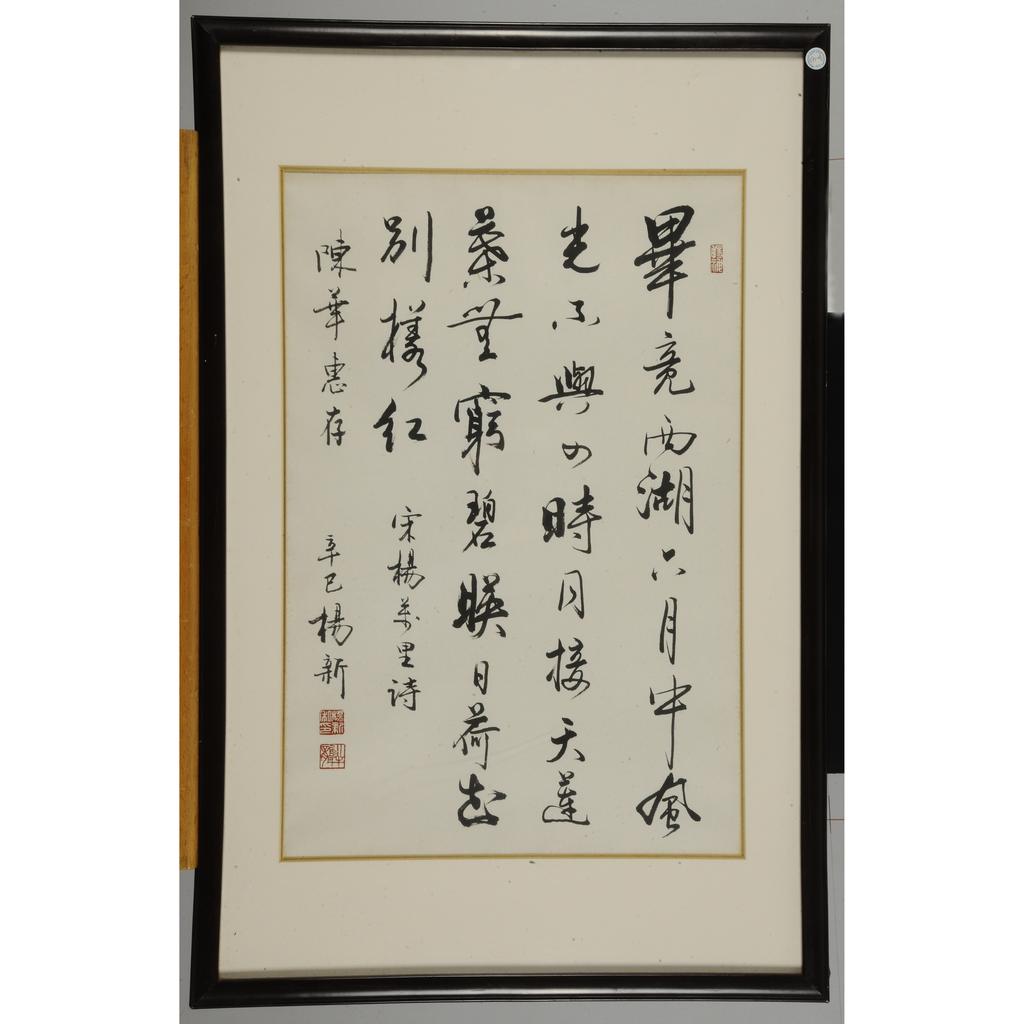 畢竟西湖六月中風
光不與四時同接天蓮
葉無窮碧映日荷花
別樣紅
宋楊萬里詩
陳華惠存
辛巳楊新